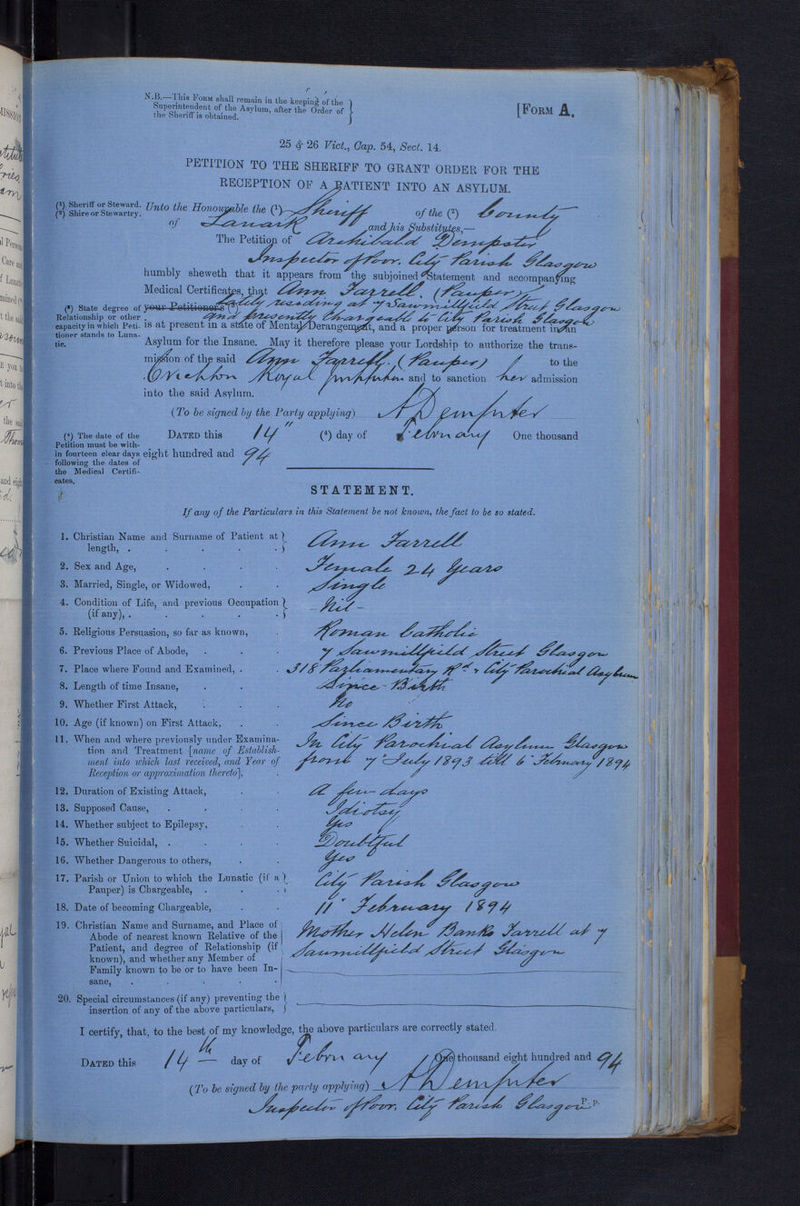 N.B.—This Form shall remain in the keeping of the
Superintendent of the Asylum, after the Order of
the Sheriff is obtained.
[Form A.
25 & 26 Vict., Cap. 54, Sect. 14.
PETITION TO THE SHERIFF TO GRANT ORDER FOR THE
RECEPTION OF A PATIENT INTO AN ASYLUM.
(1) Sheriff or Steward.
(2) Shire or Stewartry.
Unto the Honourable the (1) Sheriff of the (2) County
of Lanark and his Substitutes,—
The Petition of Archibald Dempster
Inspector of Poor. City Parish Glasgow
humbly sheweth that it appears from the subjoined Statement and accompanying
Medical Certificates, that Ann Farrell. (Pauper)
lately residing at 7 Sawmillfield Street, Glasgow
(3) State degree of
Relationship or other
capacity in which Peti-
tioner stands to Luna-
tic.
your Petitioner's (3)
and presently Chargeable to City Parish Glasgow
is at present in a state of Mental Derangement, and a proper person for treatment in an
Asylum for the Insane. May it therefore please your Lordship to authorize the trans-
mission of the said Ann Farrell. (Pauper) to the
Crichton Royal Institution and to sanction her admission
into the said Asylum.
(To be signed by the Party applying) A Dempster
(4) The date of the
Petition must be with-
in fourteen clear days
following the dates of
the Medical Certifi-
cates.
Dated this 14" (4) day of February One thousand
eight hundred and 94
STATEMENT.
If any of the Particulars in this Statement be not known, the fact to be so stated.
1. Christian Name and Surname of Patient at
length, . . . . . Ann Farrell
2. Sex and Age, . . . . Female 24 Years
3. Married, Single, or Widowed, . . Single
4. Condition of Life, and previous Occupation
(if any), . . . . . - Nil -
5. Religious Persuasion, so far as known, . Roman Catholic
6. Previous Place of Abode, . . . 7 Sawmillfield Street Glasgow
7. Place where Found and Examined, . . 318 Parliamentary Rd. & City Parochial Asylum
8. Length of time Insane, . . . Since Birth
9. Whether First Attack, . . . No
10. Age (if known) on First Attack, . . Since Birth
11. When and where previously under Examina-
tion and Treatment [name of Establish-
ment into which last received, and Year of
Reception or approximation thereto], .
In City Parochial Asylum Glasgow
from 7 July 1893 till 6 February 1894
12. Duration of Existing Attack, . . A few days
13. Supposed Cause, . . . . Idiotsy
14. Whether subject to Epilepsy, . . Yes
15. Whether Suicidal, . . . . Doubtful
16. Whether Dangerous to others, . . Yes
17. Parish or Union to which the Lunatic (if a
Pauper) is Chargeable, . . . City Parish Glasgow
18. Date of becoming Chargeable, . . 11" February 1894
19. Christian Name and Surname, and Place of
Abode of nearest known Relative of the
Patient, and degree of Relationship (if
known), and whether any Member of
Family known to be or to have been In-
sane, . . . . .
Mother Helen Banks Farrell at 7
Sawmillfield Street Glasgow
20. Special circumstances (if any) preventing the
insertion of any of the above particulars,
I certify, that, to the best of my knowledge, the above particulars are correctly stated.
Dated this 14th day of February One thousand eight hundred and 94
(To be signed by the party applying) A Dempster
Inspector of Poor. City Parish Glasgow
P. P.